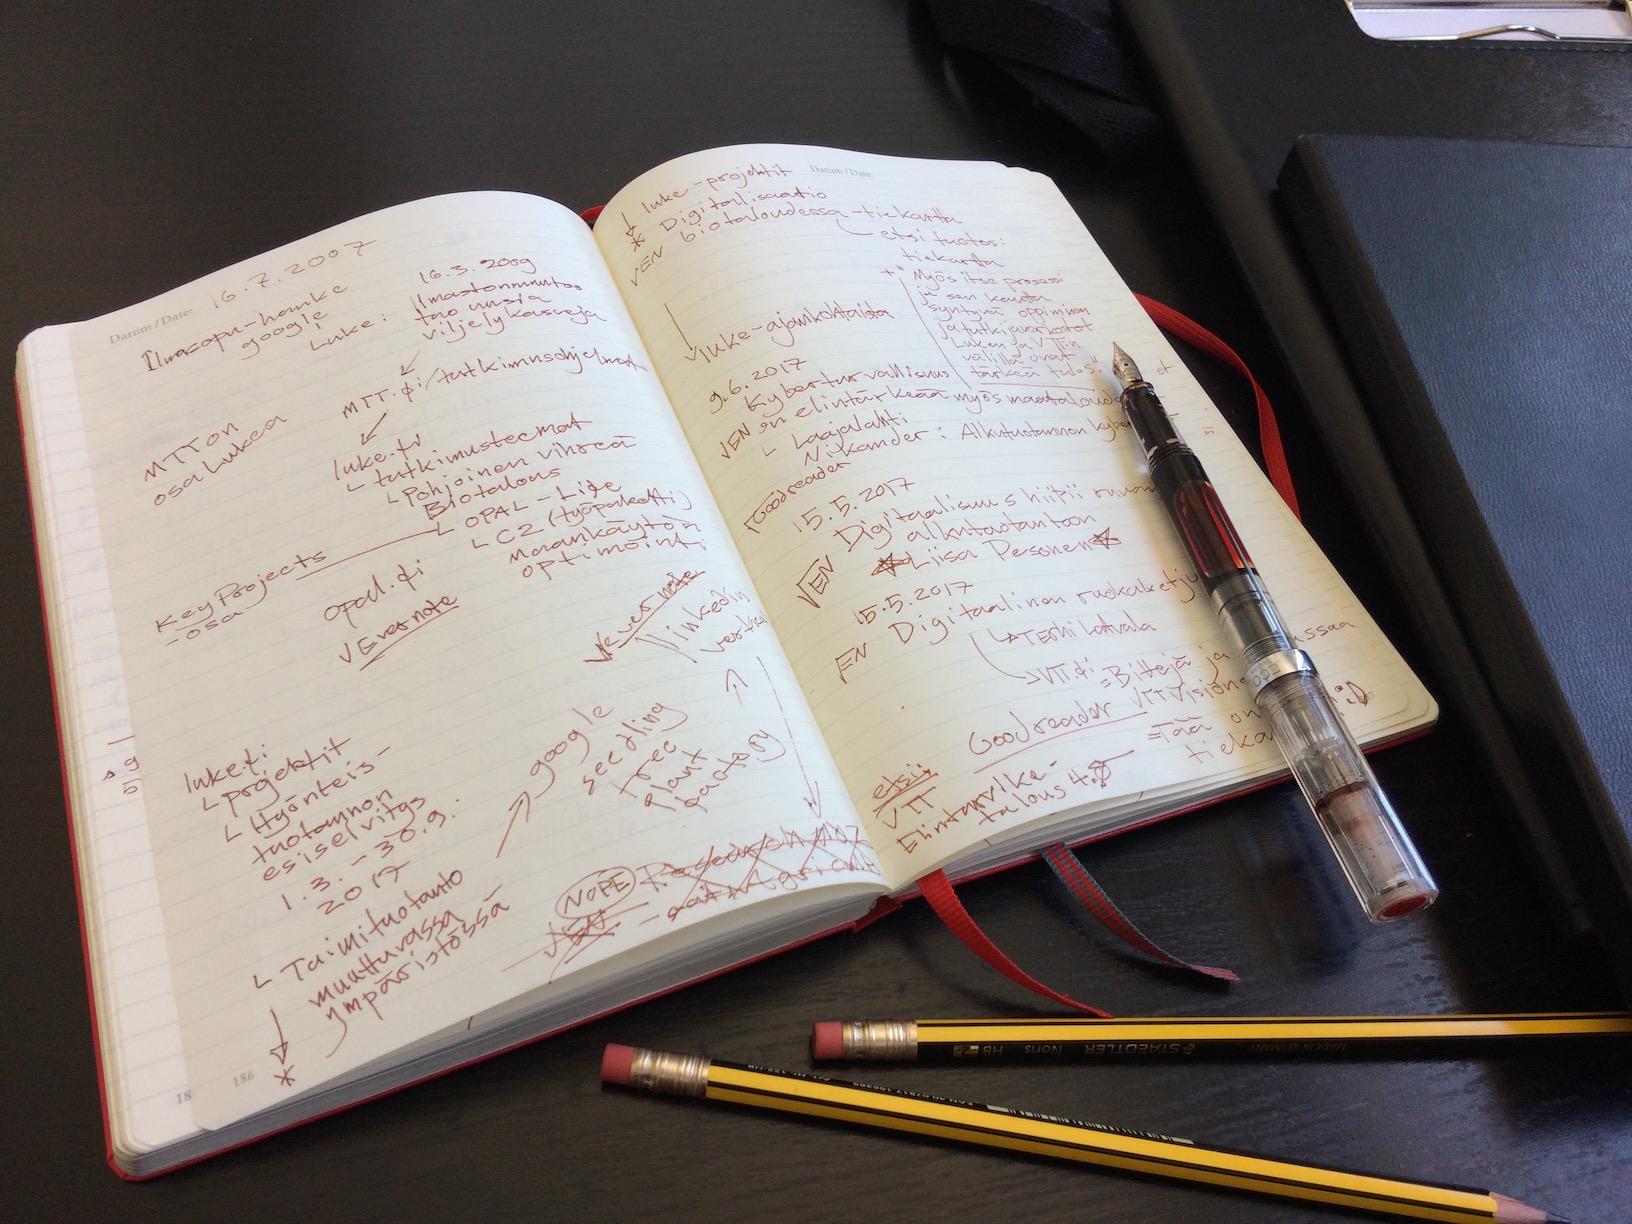 Datum / Date:
16.7.2007
Ilmacapu-hanke
google
Luke:
16.3.2009
Ilmastonmuutos
tuo uusia
viljelykasveja
MTT.fi/tutkimusohjelmat
MTT on
osa Lukea
luke.fi
tutkimusteemat
Pohjoinen vihreä
Biotalous
OPAL-Life
C2 (työpaketti)
maankäytön
optimointi
KeyProjects
-osa
opal.fi
√Evernote
√Evernote
linkedin
google
seedling
tree
plant
factory
luke.fi
projektit
Hyönteis-
tuotannon
esiselvitys
1.3.-30.9.
2017
Taimituotanto
muuttuvassa
ympäristössä
*
NOPE
186
18
Datum / Date:
luke-projektit
* Digitalisaatio
√EN biotaloudessa-tiekartta
etsi tuotos:
tiekartta
+ "Myös itse prosessi
ja sen kautta
syntyvä oppiminen
ja tutkijaverkostot
Luken ja VTT:n
välillä ovat
tärkeä tulos."
luke-ajankohtaista
9.6.2017
Kyberturvallisuus
√EN on elintärkeää myös
Laajalahti
Nikander: Alkutuotannon
Goodreader
15.5.2017
Digitaalisuus hiipii
√EN alkutuotantoon
Liisa Pesonen
15.5.2017
EN Digitaalinen ruokaketju
Terhi Latvala
VTT.fi = Bittejä ja
Goodreader
= Tää on
:D
etsi:
VTT
Elintarvike-
talous 4.0
STAEDTLER Noris HB
MADE IN GERMANY